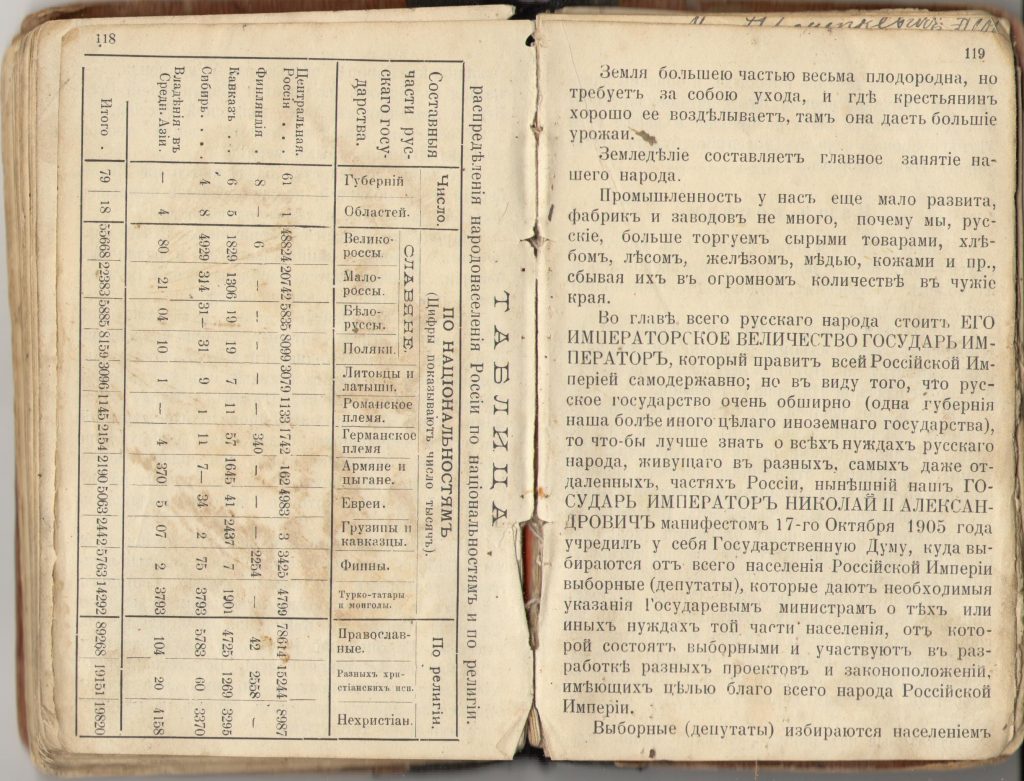 118
ТАБЛИЦА
распредѣленія народонаселенія Россіи по національностямъ и по религіи.
Составныя части русскаго государства.
Число.
ПО НАЦІОНАЛЬНОСТЯМЪ
(Цифры показываютъ число тысячъ).
По религіи.
СЛАВЯНЕ.
Губерній
Областей.
Велико-
россы.
Мало-
россы.
Бѣло-
руссы.
Поляки.
Литовцы и
латыши.
Романское
племя.
Германское
племя
Армяне и
цыгане.
Евреи.
Грузины и
кавказцы.
Финны.
Турко-татары
и монголы.
Православ-
ные.
Разныхъ хри-
стіанскихъ исп.
Нехристіан.
Центральная.
Россія . . . 61 1 48824 20742 5835 8099 3079 1133 1742 162 4983 3 3425 4799 78614 15244 8987
Финляндія . 8 — 6 — — — — — 340 — — — 2254 — 42 2558 —
Кавказъ . . . 6 5 1829 1306 19 19 7 11 57 1645 41 2437 7 1901 4725 1269 3295
Сибирь. . . . 4 8 4929 314 31— 31 9 1 11 7— 34 2 75 3793 5783 60 3370
Владѣнія въ
Средн. Азіи. — 4 80 21 04 10 1 — 4 370 5 07 2 3793 104 20 4158
Итого . 79 18 55668 22383 5885 8159 3096 1145 2154 2190 5063 2442 5763 14299 89268 19151 19820
119
Земля большею частью весьма плодородна, но
требуетъ за собою ухода, и гдѣ крестьянинъ
хорошо ее воздѣлываетъ, тамъ она даетъ большіе
урожаи.
Земледѣліе составляетъ главное занятіе на-
шего народа.
Промышленность у насъ еще мало развита,
фабрикъ и заводовъ не много, почему мы, рус-
скіе, больше торгуемъ сырыми товарами, хлѣ-
бомъ, лѣсомъ, желѣзомъ, мѣдью, кожами и пр.,
сбывая ихъ въ огромномъ количествѣ въ чужіе
края.
Во главѣ всего русскаго народа стоитъ ЕГО
ИМПЕРАТОРСКОЕ ВЕЛИЧЕСТВО ГОСУДАРЬ ИМ-
ПЕРАТОРЪ, который правитъ всей Россійской Им-
періей самодержавно; но въ виду того, что рус-
ское государство очень обширно (одна губернія
наша болѣе иного цѣлаго иноземнаго государства),
то что-бы лучше знать о всѣхъ нуждахъ русскаго
народа, живущаго въ разныхъ, самыхъ даже от-
даленныхъ, частяхъ Россіи, нынѣшній нашъ ГО-
СУДАРЬ ИМПЕРАТОРЪ НИКОЛАЙ II АЛЕКСАН-
ДРОВИЧЪ манифестомъ 17-го Октября 1905 года
учредилъ у себя Государственную Думу, куда вы-
бираются отъ всего населенія Россійской Имперіи
выборные (депутаты), которые даютъ необходимыя
указанія Государевымъ министрамъ о тѣхъ или
иныхъ нуждахъ той части населенія, отъ кото-
рой состоятъ выборными и участвуютъ въ раз-
работкѣ разныхъ проектовъ и законоположеній,
имѣющихъ цѣлью благо всего народа Россійской
Имперіи.
Выборные (депутаты) избираются населеніемъ